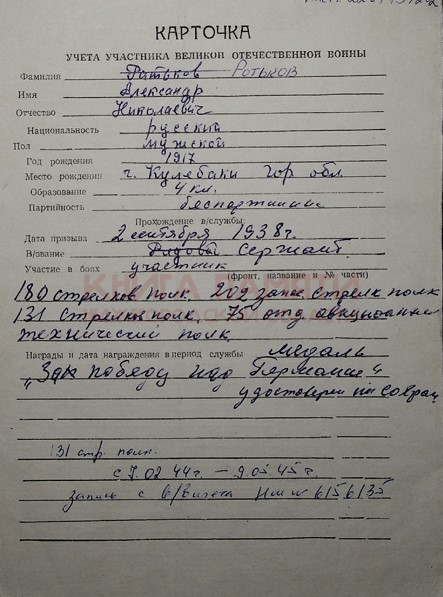 КАРТОЧКА
УЧЕТА УЧАСТНИКА ВЕЛИКОЙ ОТЕЧЕСТВЕННОЙ ВОЙНЫ
Фамилия Ротьков Ротьков
Имя Александр
Отчество Николаевич
Национальность русский
Пол мужской
Год рождения 1917
Место рождения г. Кулебаки Гор обл.
Образование 4 кл.
Партийность беспартийный
Прохождение в/службы:
Дата призыва 2 сентября 1938 г.
В/звание Рядовы Сержант.
Участие в боях участник
(фронт, название и № части)
180 стрелков полк. 202 запас стрелк полк
131 стрелков полк. 75 отд авиационный
технический полк.
Награды и дата награждения в период службы медаль
„За победу над Германие"
удостоверен
131 стр. полк.
с 7.02.44г. – 9.05.45г.
запись с в/билета НИ № 6156135
КНИГА ПАМЯТИ